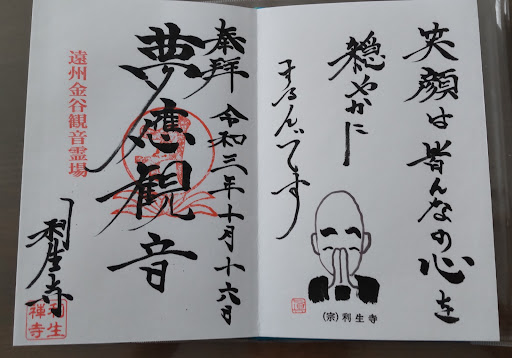 笑顔は皆んなの心を
穏やかに
するんです
(宗)利生寺
奉拝
令和三年十月十六日
夢應観音
遠州金谷観音霊場
利生寺
利生
禅寺